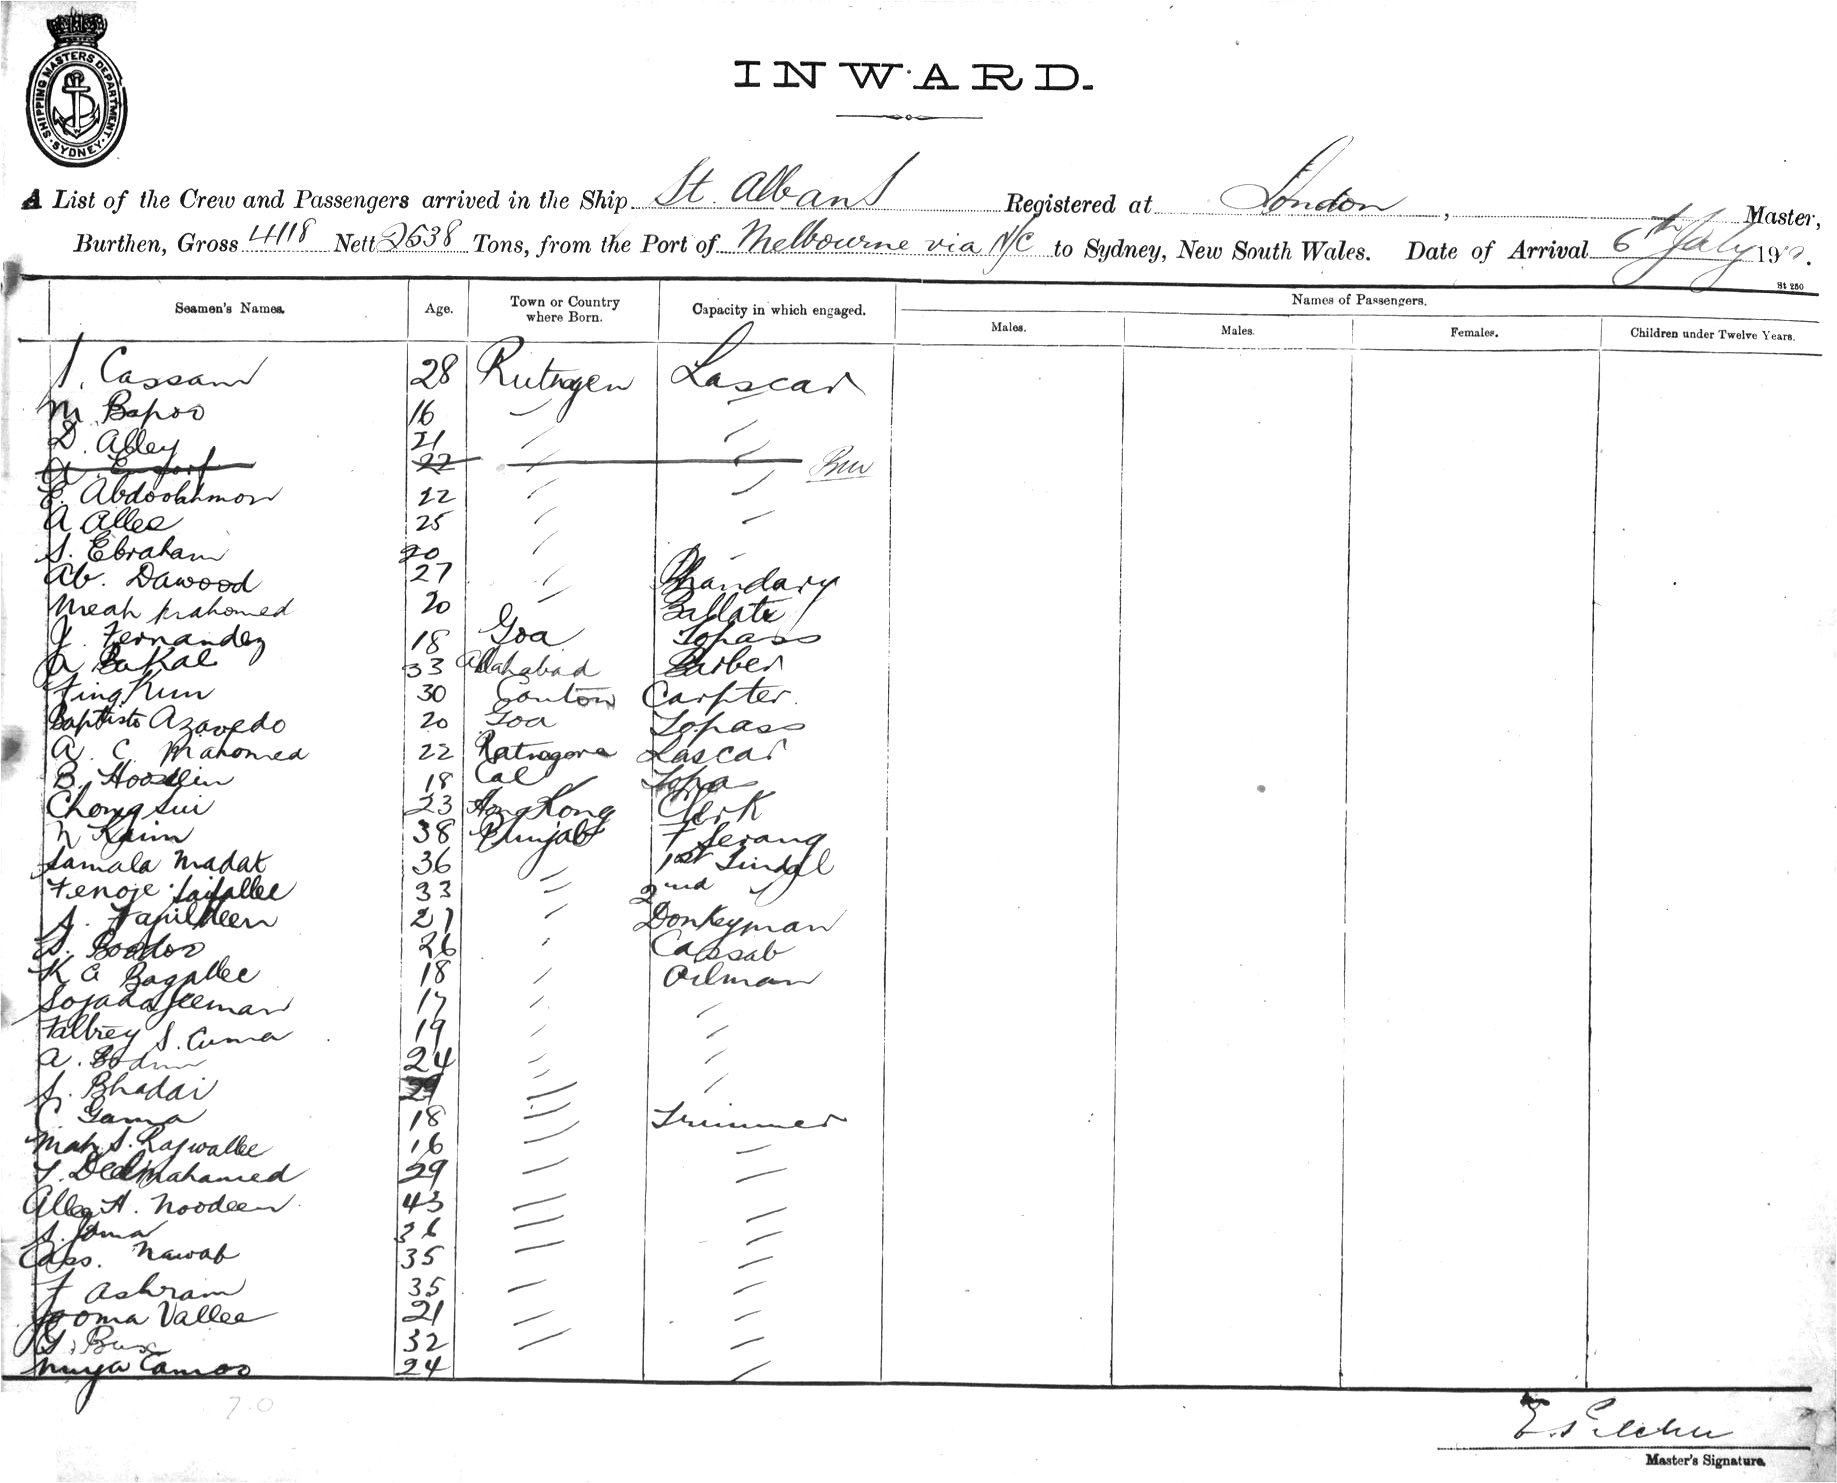 SHIPPING MASTERS DEPARTMENT
SYDNEY
INWARD.
A List of the Crew and Passengers arrived in the Ship St. Albans Registered at London, Master,
Burthen, Gross 4118 Nett 2538 Tons, from the Port of Melbourne via N/C to Sydney, New South Wales. Date of Arrival 6th July 19
St 250
Seamen's Names. Age. Town or Country where Born. Capacity in which engaged. Names of Passengers.
Males. Males. Females. Children under Twelve Years.
Cassam 28 Lascar
M Bapoo 16 " "
D. Alley 21 " "
A. 22 " "
E. Abdoolahmon 22 " "
A Allee 25 " "
S. Ebraham 20 " "
Ab. Dawood 27 " Bhandary
Meah 20 "
J. Fernandez 18 Goa Topass
A Bakal 33 Allahabad Barber
Ting Kun 30 Canton Carpter.
Baptisto Azavedo 20 Goa Topass
A. C. Mahomed 22 Lascar
B. Hoosein 18 Cal Topa
Chong Sui 23 Hong Kong Clerk
N Kaim 38 Punjab F Serang
Samala Madat 36 " 1st Tindal
33 " 2nd "
27 " Donkeyman
S. Boodoo 26 " Cassab
K G Bagallee 18 " Oilman
17 " "
S. Cuma 19 " "
A. 24 " "
S. Bhadai " "
C Gama 18 " Trimmer
Mah. S. Rajwallee 16 " "
Mahamed 29 " "
Allee H. Noodeen 43 " "
S. Joma 36 " "
Cass. Nawab 35 " "
F Ashram 35 " "
Jooma Vallee 21 " "
G. Bux 32 " "
24 "
70
E. Pilcher
Master's Signature.